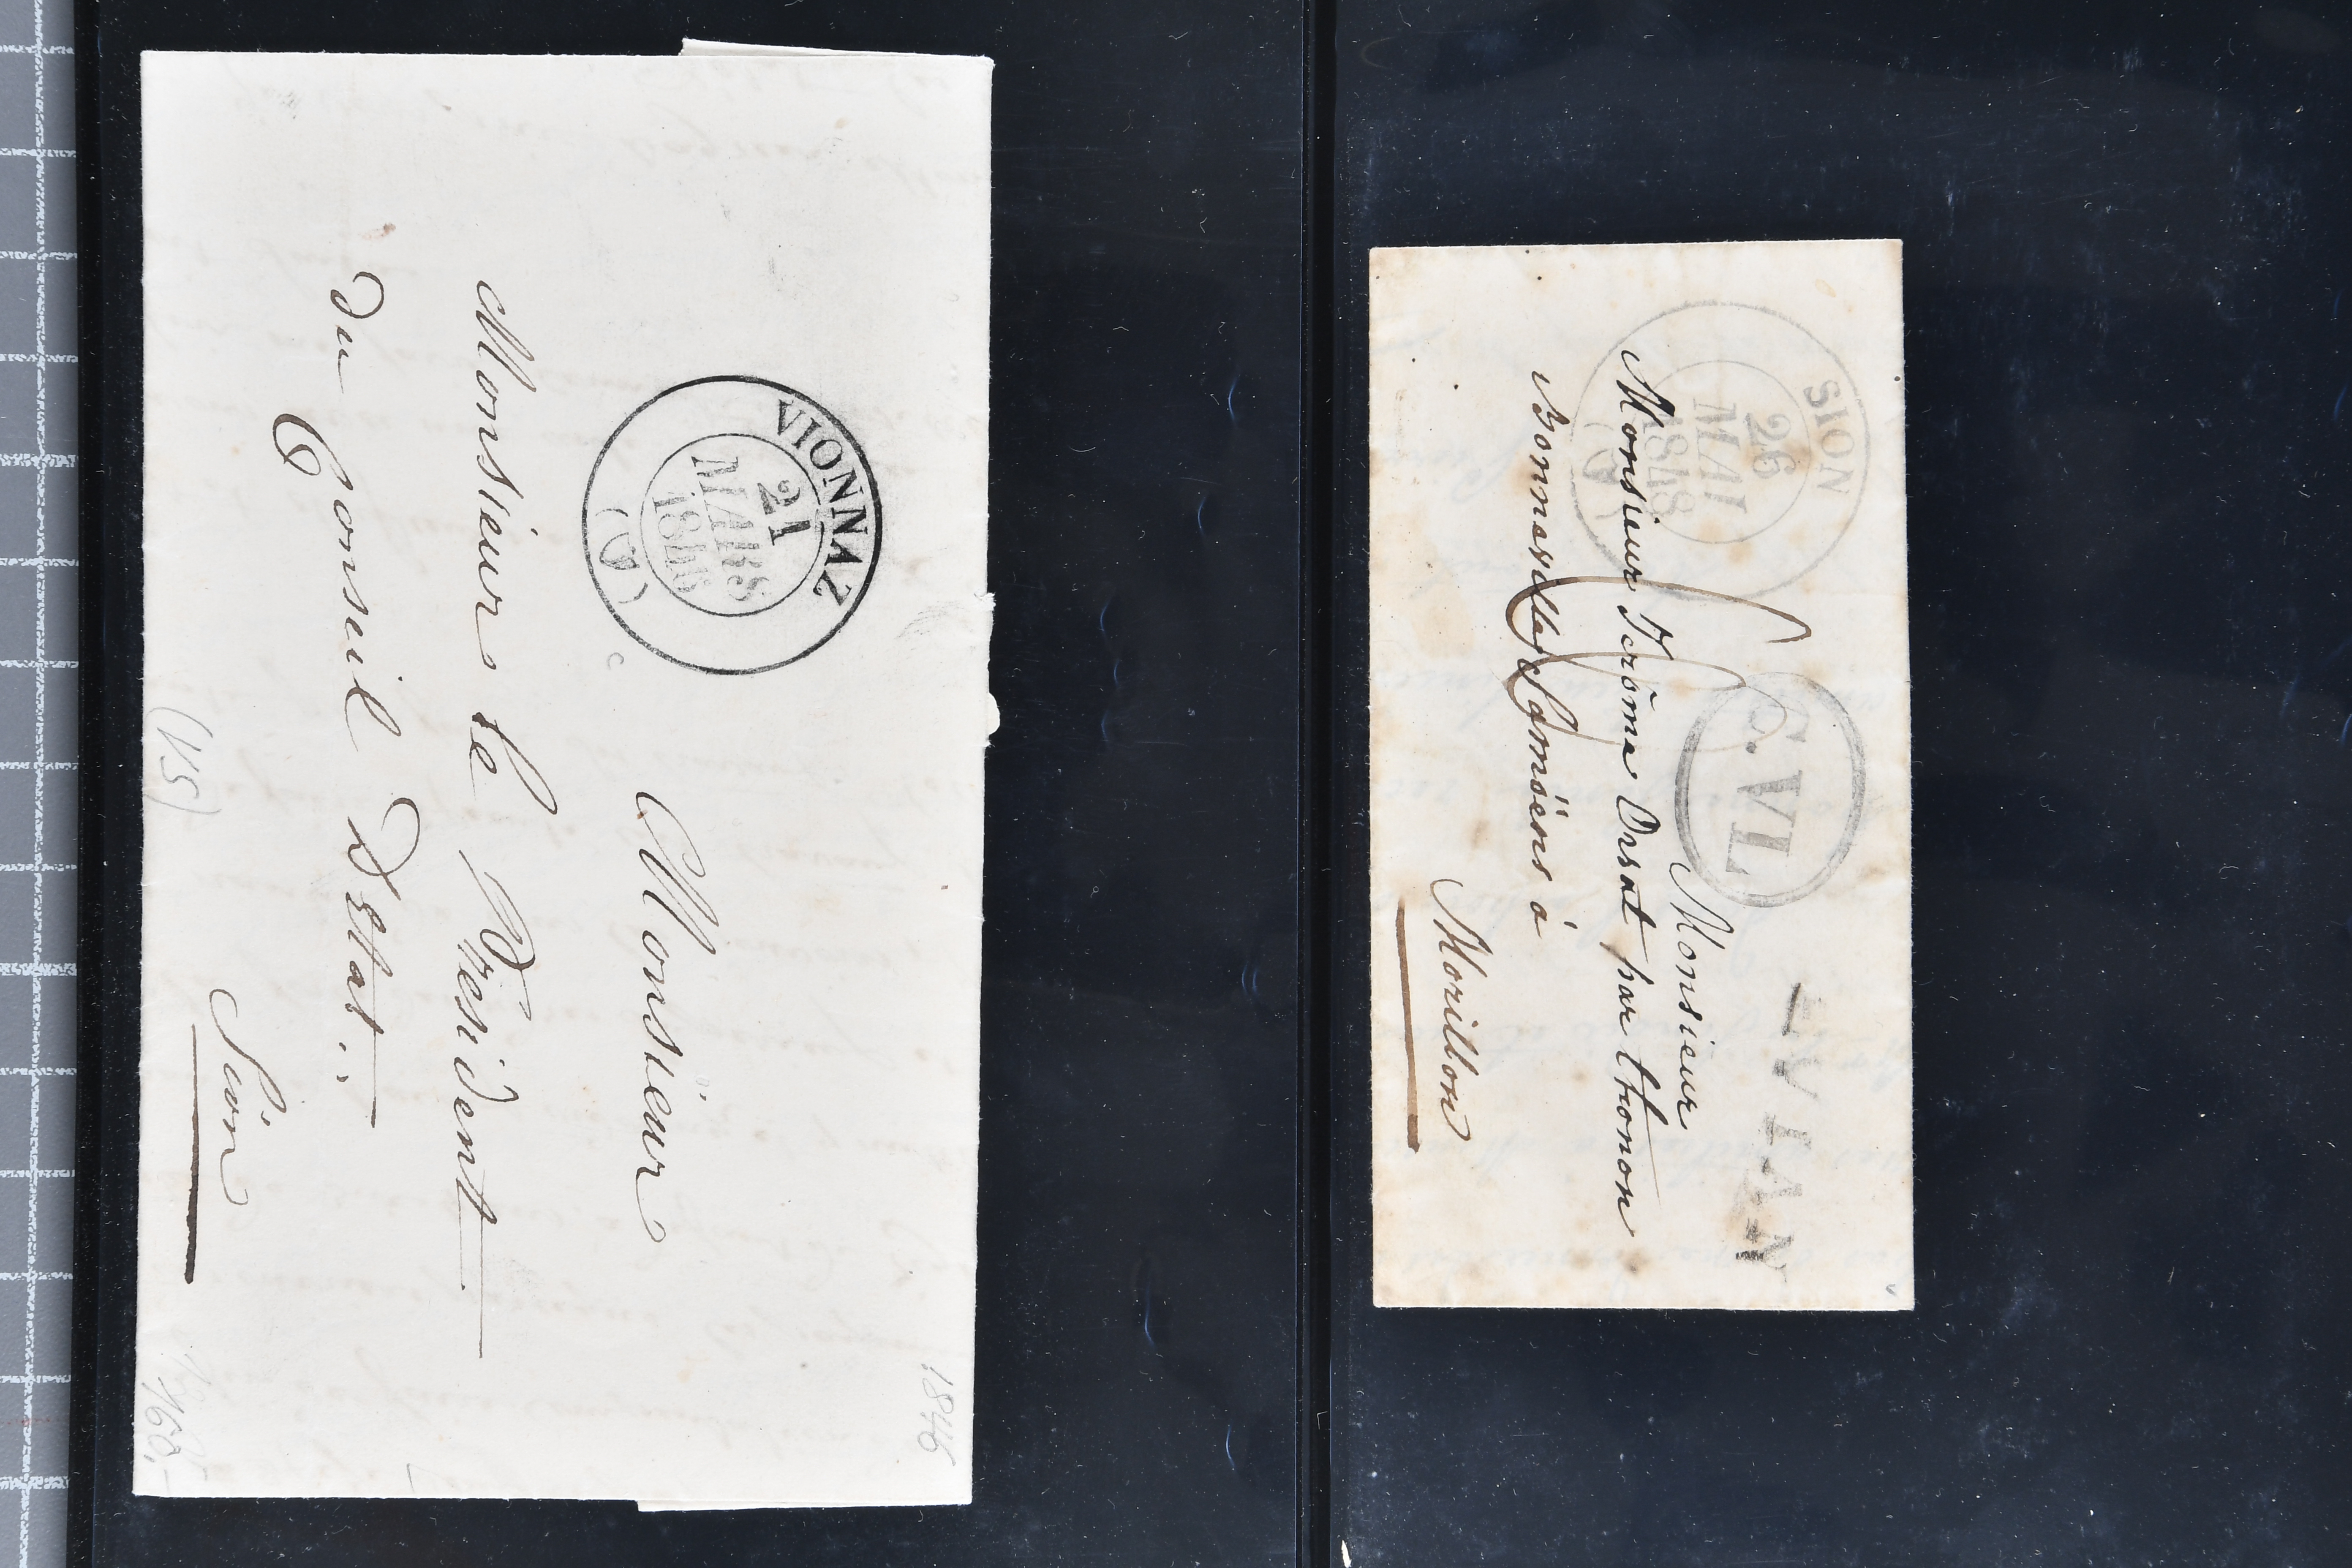 1846
VIONNAZ
21
MARS
1846
(V)
Monsieur
Monsieur le Président
du Conseil D'Etat.
Sion
(VS)
SION
26
MAI
1848
(V)
C. VL
EVIAN
Monsieur
Monsieur Jerôme Orsat par thonon
Bonneville Samöens à
Morillon